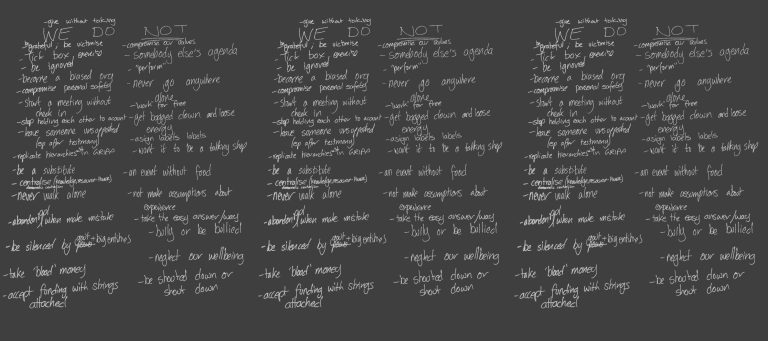 -give without taking
WE DO NOT
-grateful, be victimise
- Tick box exercise
- be ignored
- become a biased org
-compromise personal safety
- Start a meeting without
check in
-stop holding each other to account
-leave someone unsupported
(esp after testimony)
-replicate hierarchies in Groups
-be a substitute
-centralise
-never walk alone
-abandon gal when make mistake
-be silenced by govt + big entities
-take 'blood' money
-accept funding with strings
attached
-compromise our values
-somebody else's agenda
-"perform"
-never go anywhere
alone
-work for free
-get bogged down and loose
energy
-asign labels labels
-want it to be a talking shop
-an event without food
-not make assumptions about
experience
-take the easy answer/way
-bully or be bullied
-neglect our wellbeing
-be shouted down or
shout down
-give without taking
WE DO NOT
-grateful, be victimise
- Tick box exercise
- be ignored
- become a biased org
-compromise personal safety
- Start a meeting without
check in
-stop holding each other to account
-leave someone unsupported
(esp after testimony)
-replicate hierarchies in Groups
-be a substitute
-centralise
-never walk alone
-abandon gal when make mistake
-be silenced by govt + big entities
-take 'blood' money
-accept funding with strings
attached
-compromise our values
-somebody else's agenda
-"perform"
-never go anywhere
alone
-work for free
-get bogged down and loose
energy
-asign labels labels
-want it to be a talking shop
-an event without food
-not make assumptions about
experience
-take the easy answer/way
-bully or be bullied
-neglect our wellbeing
-be shouted down or
shout down
-give without taking
WE DO NOT
-grateful, be victimise
- Tick box exercise
- be ignored
- become a biased org
-compromise personal safety
- Start a meeting without
check in
-stop holding each other to account
-leave someone unsupported
(esp after testimony)
-replicate hierarchies in Groups
-be a substitute
-centralise
-never walk alone
-abandon gal when make mistake
-be silenced by govt + big entities
-take 'blood' money
-accept funding with strings
attached
-compromise our values
-somebody else's agenda
-"perform"
-never go anywhere
alone
-work for free
-get bogged down and loose
energy
-asign labels labels
-want it to be a talking shop
-an event without food
-not make assumptions about
experience
-take the easy answer/way
-bully or be bullied
-neglect our wellbeing
-be shouted down or
shout down